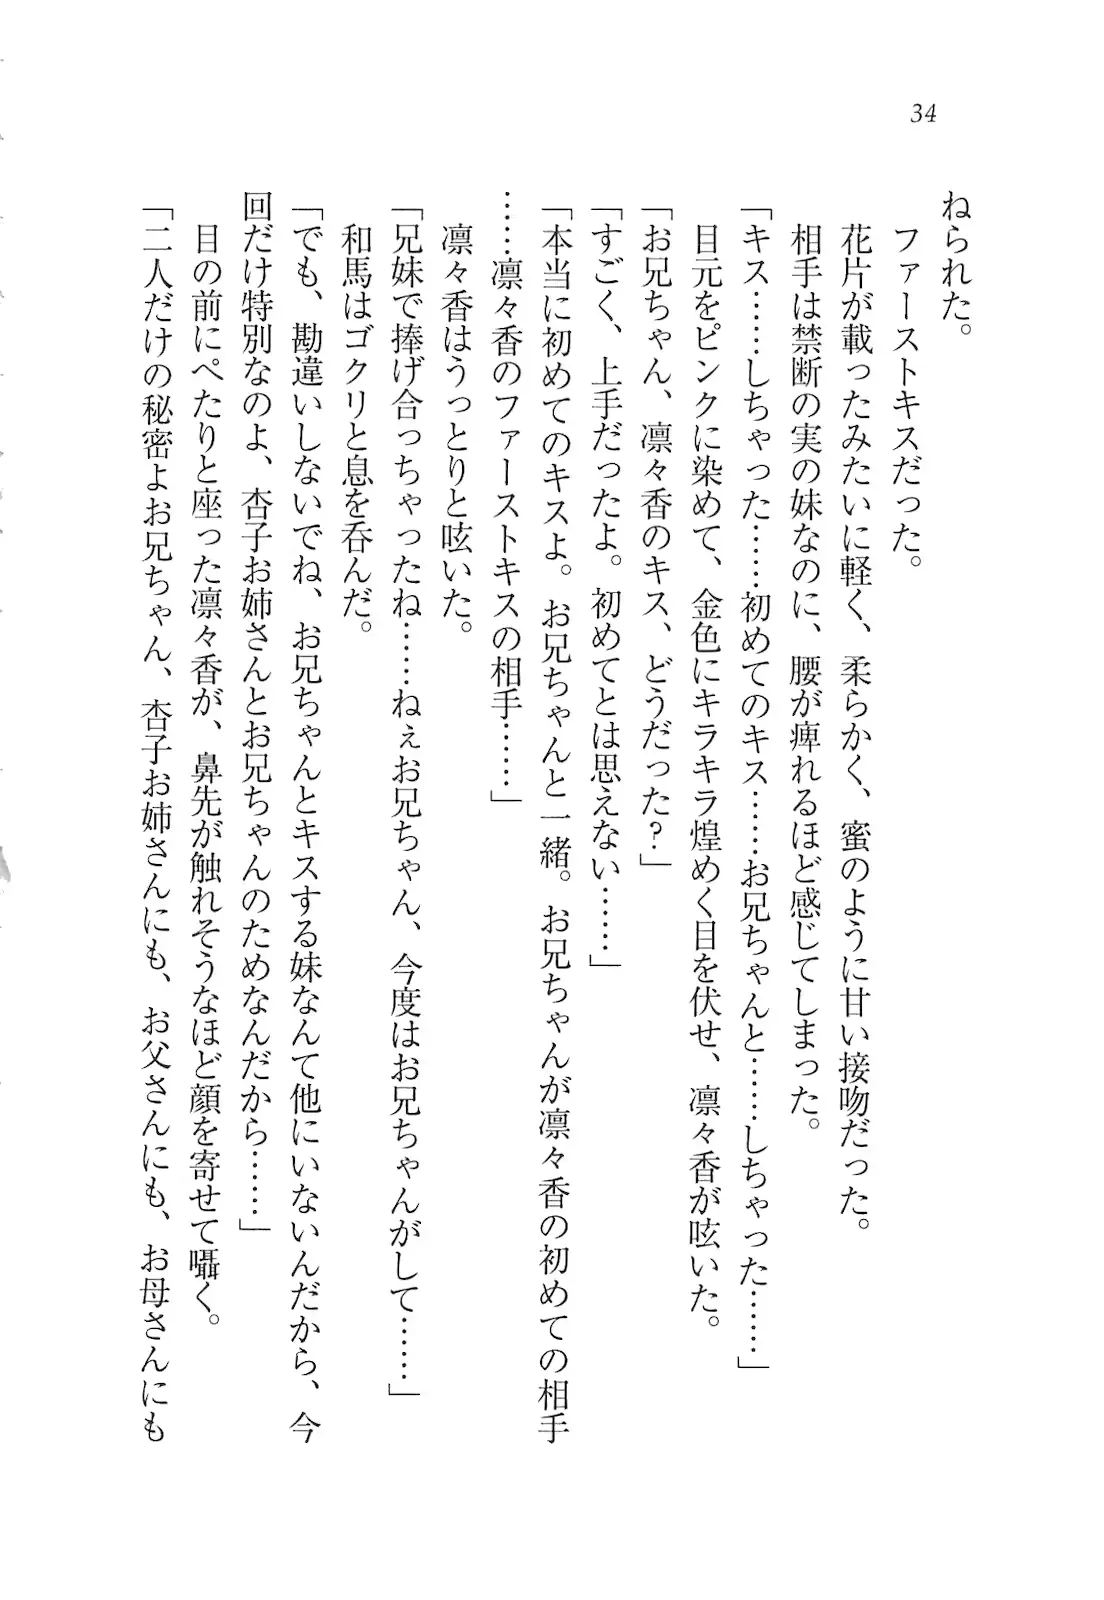 34
ねられた。
ファーストキスだった。
花片が載ったみたいに軽く、柔らかく、蜜のように甘い接吻だった。
相手は禁断の実の妹なのに、腰が痺れるほど感じてしまった。
「キス……しちゃった……初めてのキス……お兄ちゃんと……しちゃった……」
目元をピンクに染めて、金色にキラキラ煌めく目を伏せ、凛々香が呟いた。
「お兄ちゃん、凛々香のキス、どうだった？」
「すごく、上手だったよ。初めてとは思えない……」
「本当に初めてのキスよ。お兄ちゃんと一緒。お兄ちゃんが凛々香の初めての相手
……凛々香のファーストキスの相手……」
凛々香はうっとりと呟いた。
「兄妹で捧げ合っちゃったね……ねぇお兄ちゃん、今度はお兄ちゃんがして……」
和馬はゴクリと息を呑んだ。
「でも、勘違いしないでね、お兄ちゃんとキスする妹なんて他にいないんだから、今
回だけ特別なのよ、杏子お姉さんとお兄ちゃんのためなんだから……」
目の前にぺたりと座った凛々香が、鼻先が触れそうなほど顔を寄せて囁く。
「二人だけの秘密よお兄ちゃん、杏子お姉さんにも、お父さんにも、お母さんにも